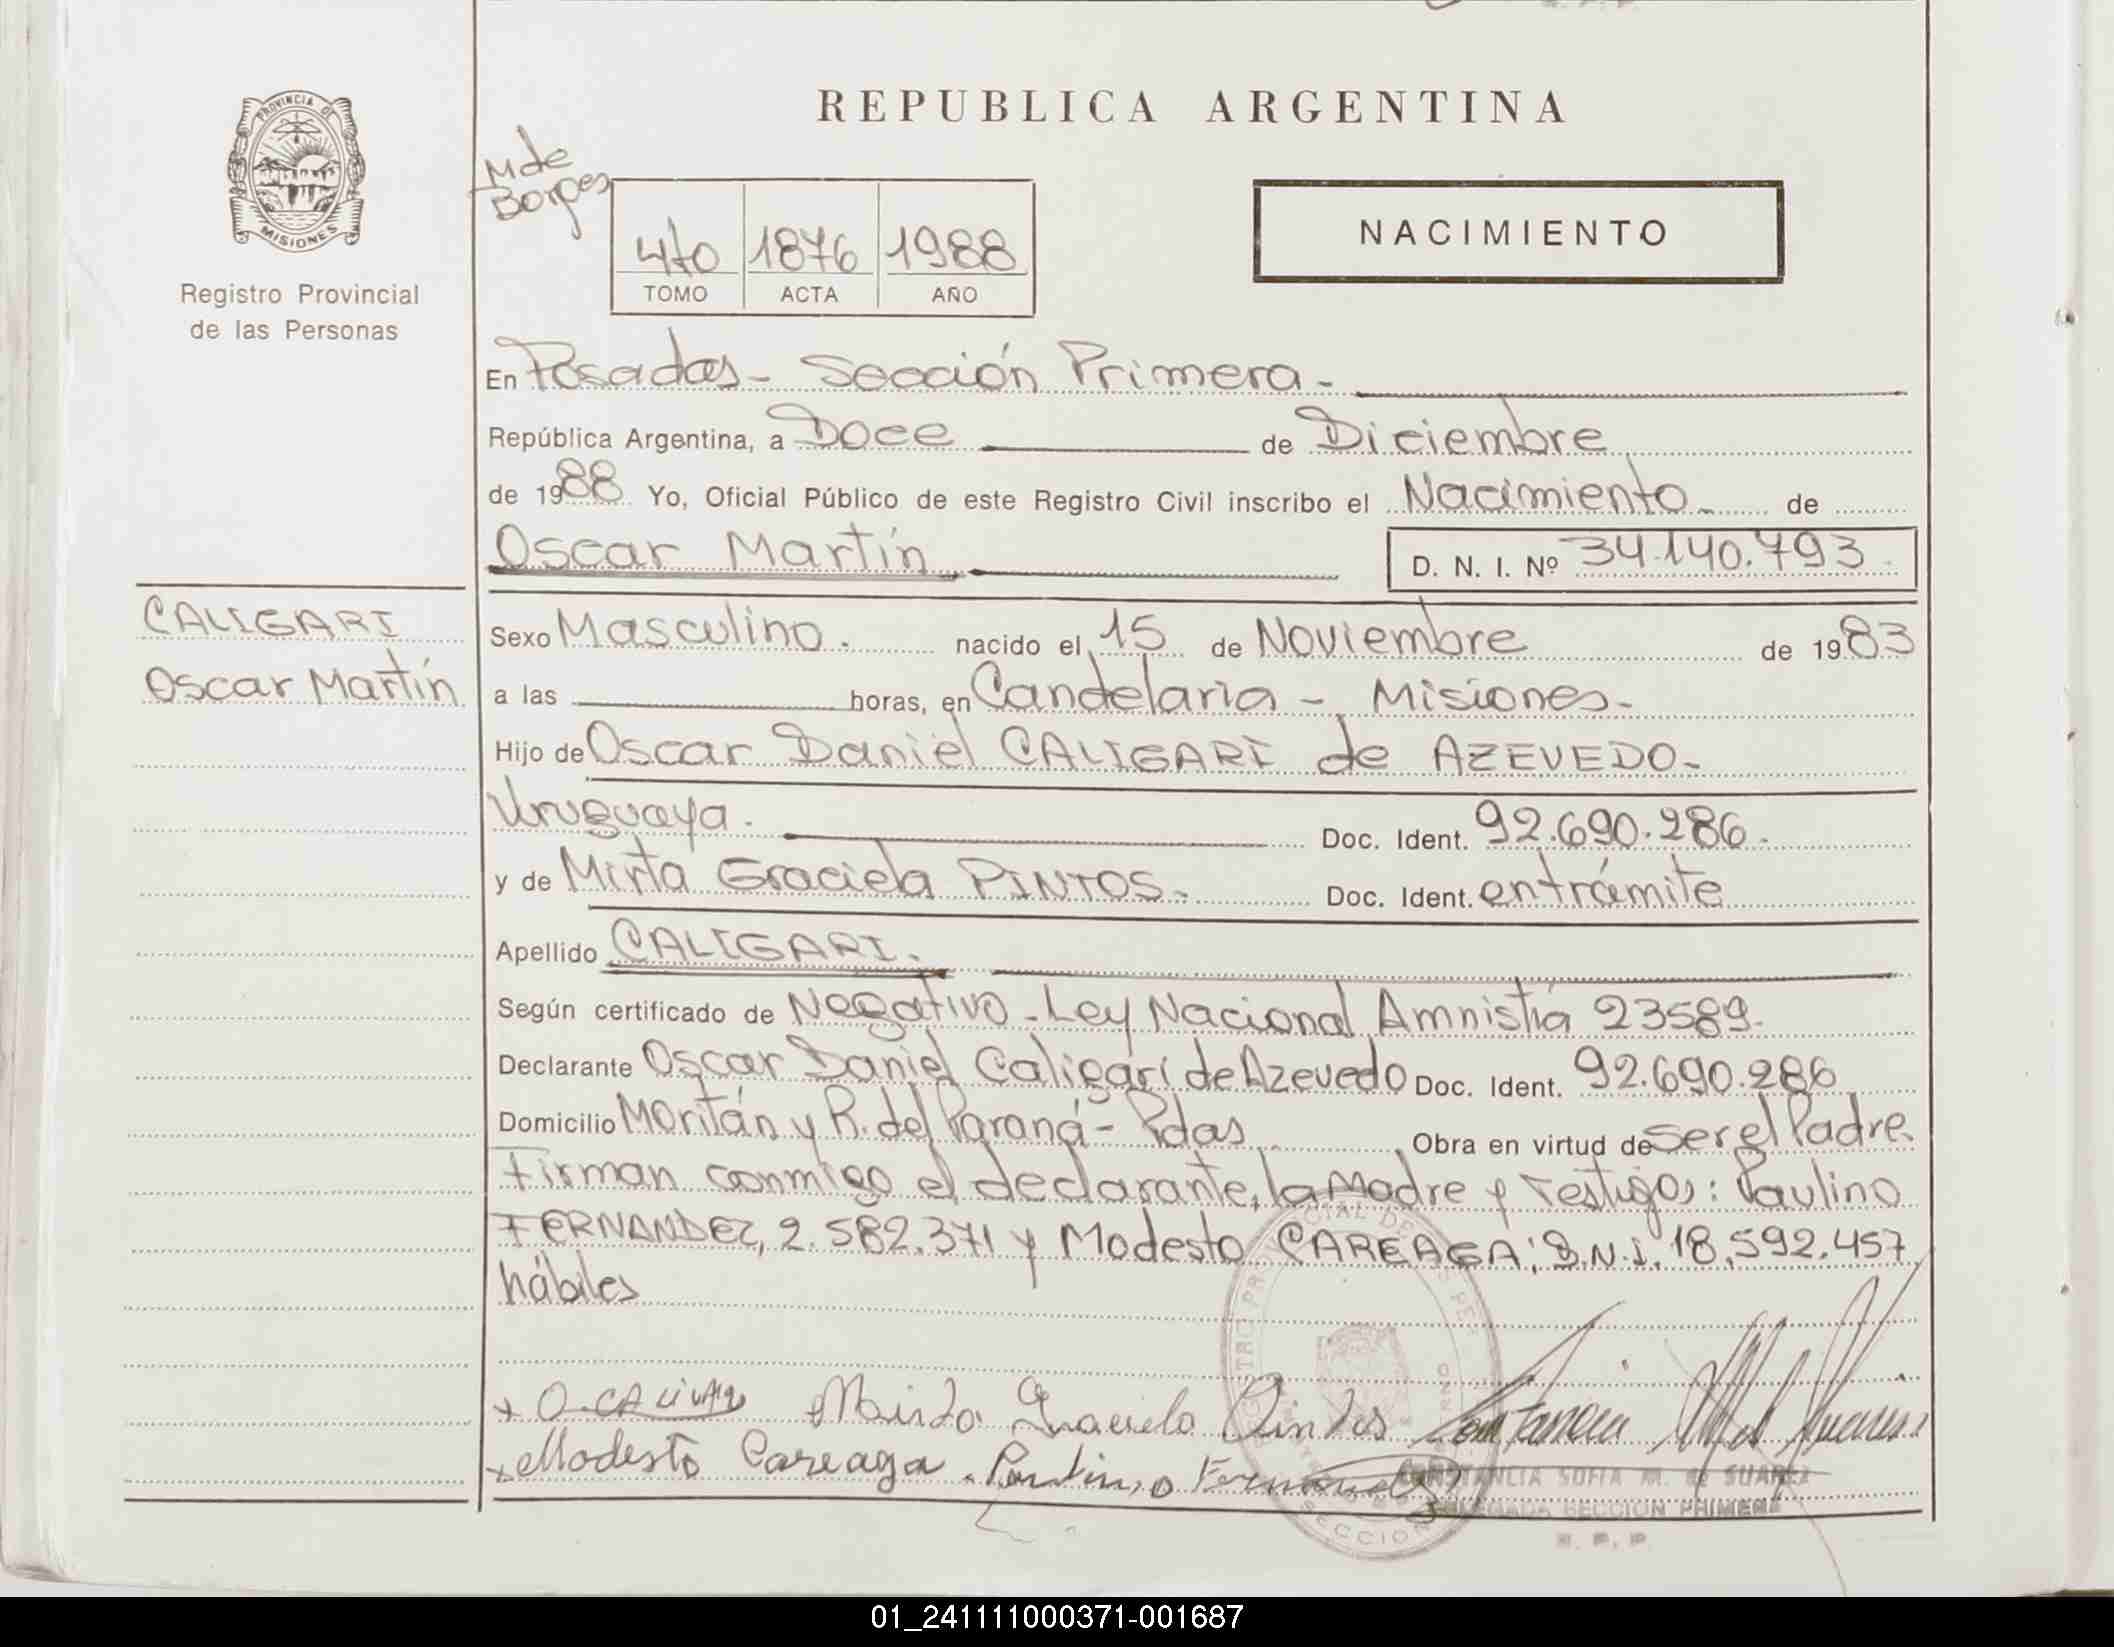 PROVINCIA DE
MISIONES
Registro Provincial
de las Personas
CALIGARI
Oscar Martín
REPUBLICA ARGENTINA
M de
Borges
4to 1876 1988
TOMO ACTA AÑO
NACIMIENTO
En Posadas - Sección Primera -
República Argentina, a Doce de Diciembre
de 1988 Yo, Oficial Público de este Registro Civil inscribo el Nacimiento de
Oscar Martín D. N. I. Nº 34.140.793
Sexo Masculino. nacido el 15 de Noviembre de 1983
a las horas, en Candelaria - Misiones -
Hijo de Oscar Daniel CALIGARI de AZEVEDO -
Uruguaya. Doc. Ident. 92.690.286.
y de Mirta Graciela PINTOS. Doc. Ident. en trámite
Apellido CALIGARI.
Según certificado de Negativo - Ley Nacional Amnistía 23589.
Declarante Oscar Daniel Caligari de Azevedo Doc. Ident. 92.690.286
Domicilio Moritán y R. del Paraná - Pdas Obra en virtud de ser el Padre.
Firman conmigo el declarante, la Madre y Testigos: Paulino
FERNANDEZ, 2.582.371 y Modesto CAREAGA; D.N.I. 18.592.457
hábiles
Mirta Graciela Pintos
Modesto Careaga. Paulino Fernandez
CONSTANCIA SOFIA M. de SUAREZ
DELEGADA SECCION PRIMERA
R. P. P.
01_241111000371-001687